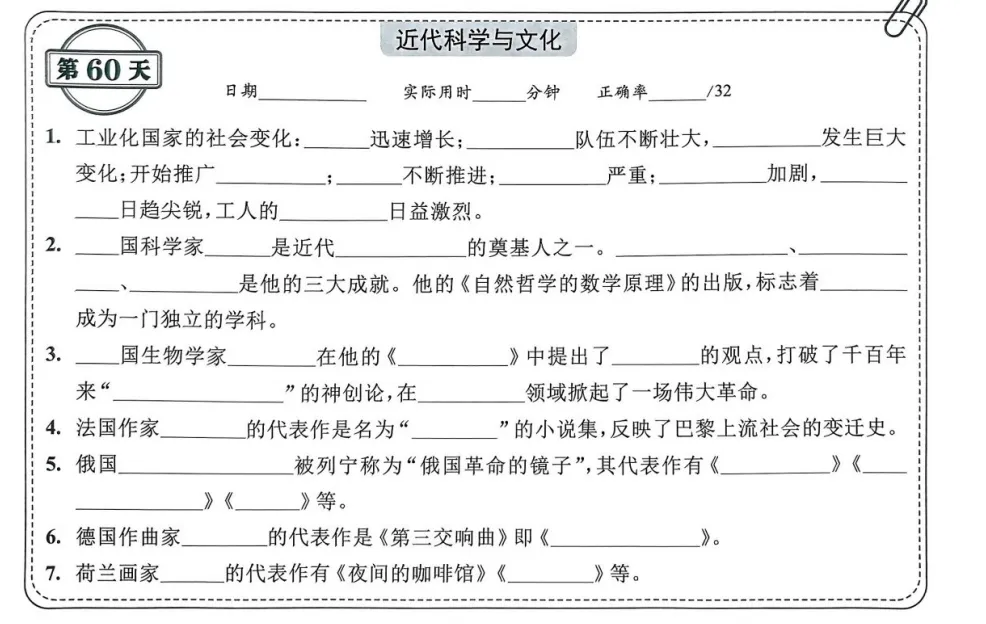 近代科学与文化
第60天
日期__________ 实际用时_____分钟 正确率_____/32
1. 工业化国家的社会变化:______迅速增长;__________队伍不断壮大,__________发生巨大
变化;开始推广__________;______不断推进;__________严重;__________加剧,________
____日趋尖锐,工人的__________日益激烈。
2. ____国科学家______是近代____________的奠基人之一。________________、__________
____、__________是他的三大成就。他的《自然哲学的数学原理》的出版,标志着________
成为一门独立的学科。
3. ____国生物学家________在他的《__________》中提出了________的观点,打破了千百年
来“________________”的神创论,在__________领域掀起了一场伟大革命。
4. 法国作家________的代表作是名为“________”的小说集,反映了巴黎上流社会的变迁史。
5. 俄国________________被列宁称为“俄国革命的镜子”,其代表作有《__________》《____
____________》《______》等。
6. 德国作曲家________的代表作是《第三交响曲》即《______________》。
7. 荷兰画家______的代表作有《夜间的咖啡馆》《________》等。